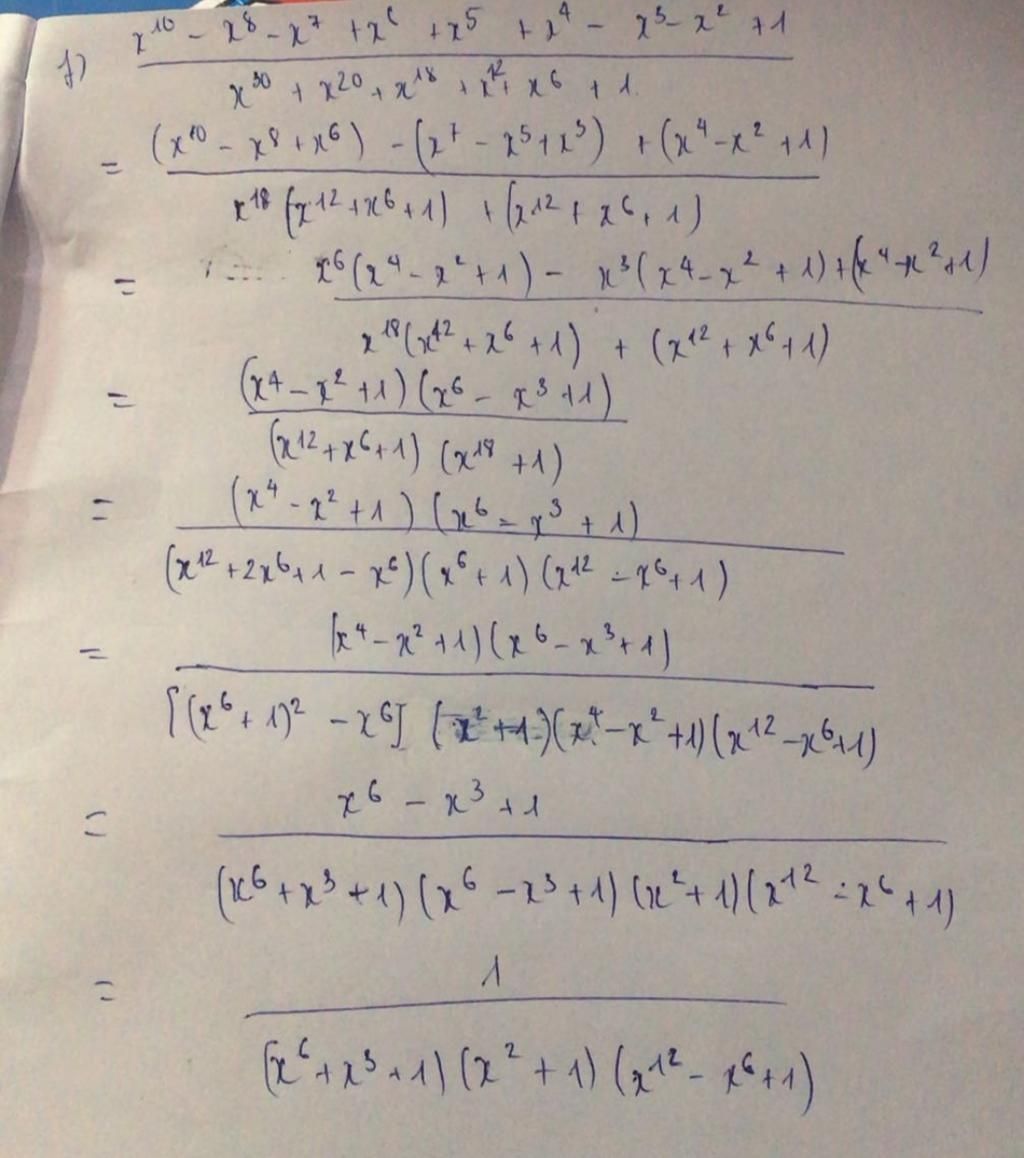 f) x^10 - x^8 - x^7 + x^6 + x^5 + x^4 - x^3 - x^2 + 1
x^30 + x^20 + x^18 + x^12 + x^6 + 1
= (x^10 - x^8 + x^6) - (x^7 - x^5 + x^3) + (x^4 - x^2 + 1)
x^18 (x^12 + x^6 + 1) + (x^12 + x^6 + 1)
= x^6 (x^4 - x^2 + 1) - x^3 (x^4 - x^2 + 1) + (x^4 - x^2 + 1)
x^18 (x^12 + x^6 + 1) + (x^12 + x^6 + 1)
= (x^4 - x^2 + 1) (x^6 - x^3 + 1)
(x^12 + x^6 + 1) (x^18 + 1)
= (x^4 - x^2 + 1) (x^6 - x^3 + 1)
(x^12 + 2x^6 + 1 - x^6) (x^6 + 1) (x^12 - x^6 + 1)
= (x^4 - x^2 + 1) (x^6 - x^3 + 1)
[(x^6 + 1)^2 - x^6] (x^2 + 1) (x^4 - x^2 + 1) (x^12 - x^6 + 1)
= x^6 - x^3 + 1
(x^6 + x^3 + 1) (x^6 - x^3 + 1) (x^2 + 1) (x^12 - x^6 + 1)
= 1
(x^6 + x^3 + 1) (x^2 + 1) (x^12 - x^6 + 1)